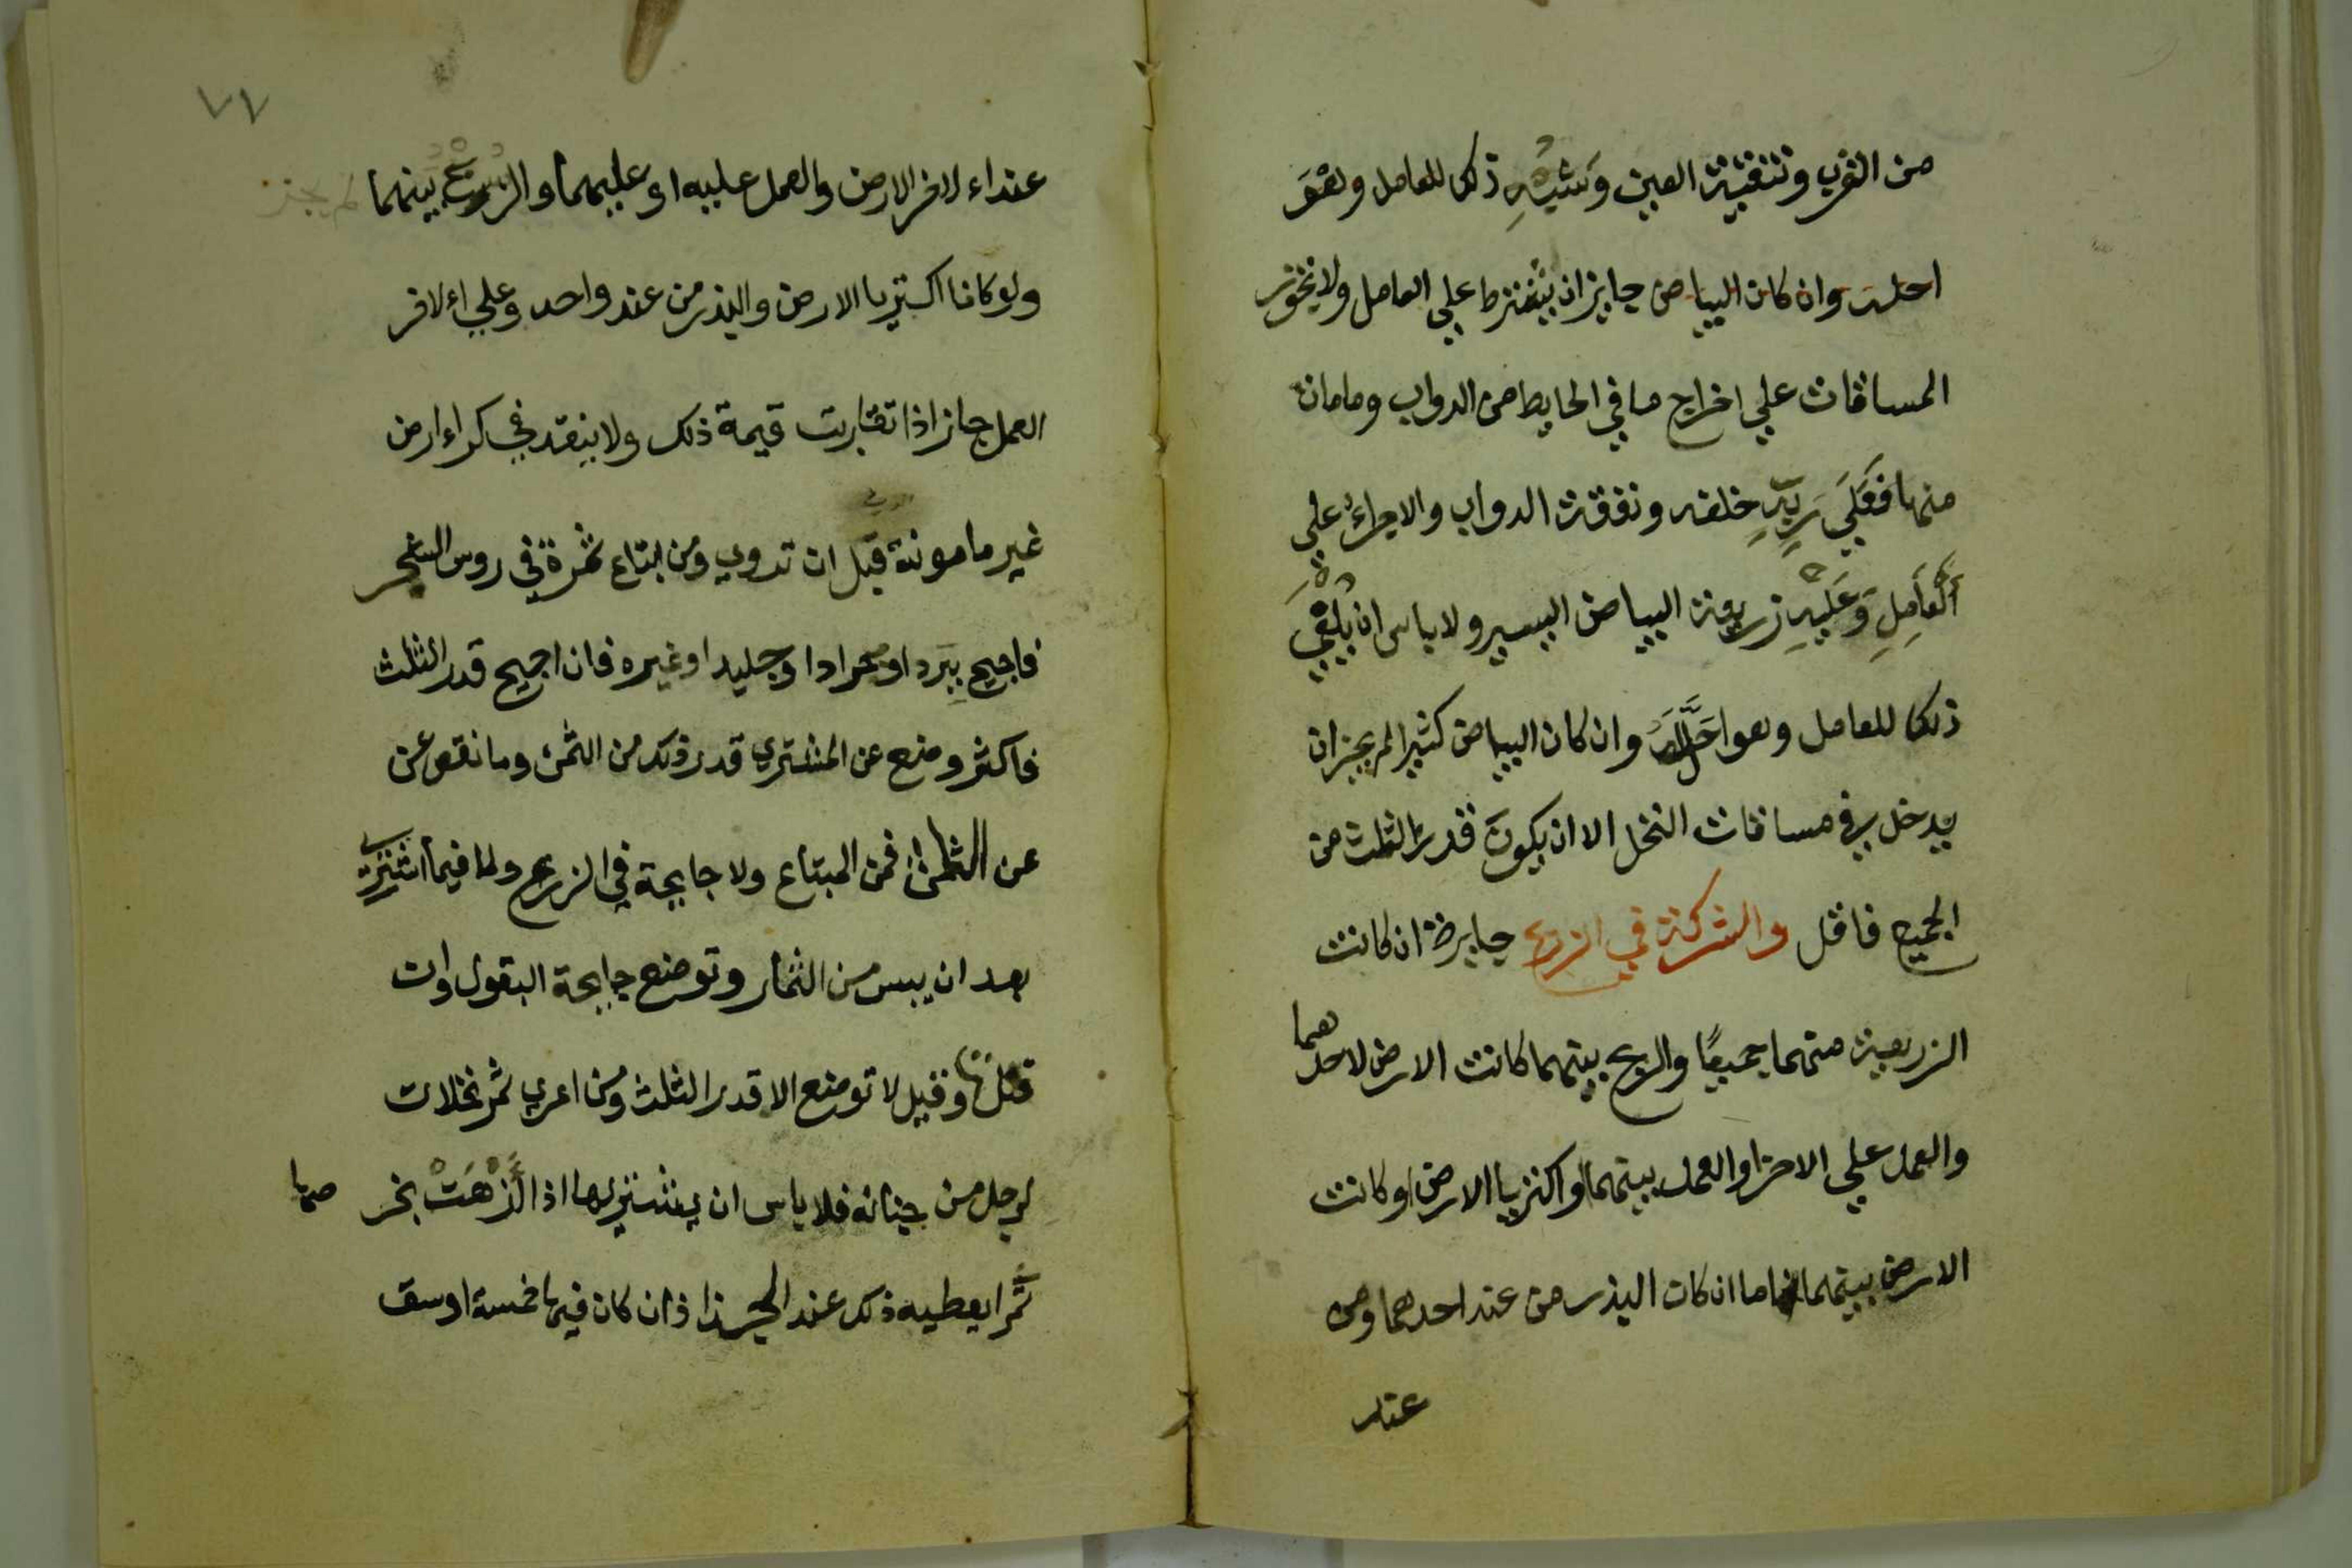 من الغرب وتنقية العين وشبه ذلك للعامل وهو
احله وان كان البياض جايزان يشترط علي العامل ولا تجوز
المساقات علي اخراج ما في الحايط من الدواب وما مات
منها فعلي ربه خلفه ونفقة الدواب والاجراء علي
العامل وعليه زريعة البياض اليسير ولا باس ان يلقي
ذلك للعامل وهو احله وان كان البياض كثيرا لم يجز ان
يدخل في مساقات النخل الا ان يكون قدر الثلث من
الجميع فاقل والشركة في الزرع جايزة ان كانت
الزريعة منهما جميعا والربح بينهما كانت الارض لاحدهما
والعمل علي الاخر او العمل بينهما او اكتريا الارض او كانت
الارض بينهما اما ان كان البذر من عند احدهما ومن
عند
٧٧
عند اء لاخر الارض والعمل عليه او عليهما والربح بينهما لم يجز
ولو كانا اكتريا الارض والبذر من عند واحد وعلي اء لاخر
العمل جاز اذا تقاربت قيمة ذلك ولا ينقد في كراء ارض
غير مامونة قبل ان تروي ومن ابتاع ثمرة في روس الشجر
فاجيح ببرد او جراد او جليد او غيره فان اجيح قدر الثلث
فاكثر وضع عن المشتري قدر ذلك من الثمن وما نقص عن
عن الثلث فمن المبتاع ولا جايحة في الزرع ولا فيما اشتري
بعد ان يبس من الثمار وتوضع جايحة البقول وان
قلت وقيل لا توضع الا قدر الثلث ومن اعري ثمر نخلات
لرجل من جنانه فلا باس ان يشتريها اذا ازهت بخرصها
ثمرا يعطيه ذلك عند الجذاذ ان كان فيها خمسة اوسق